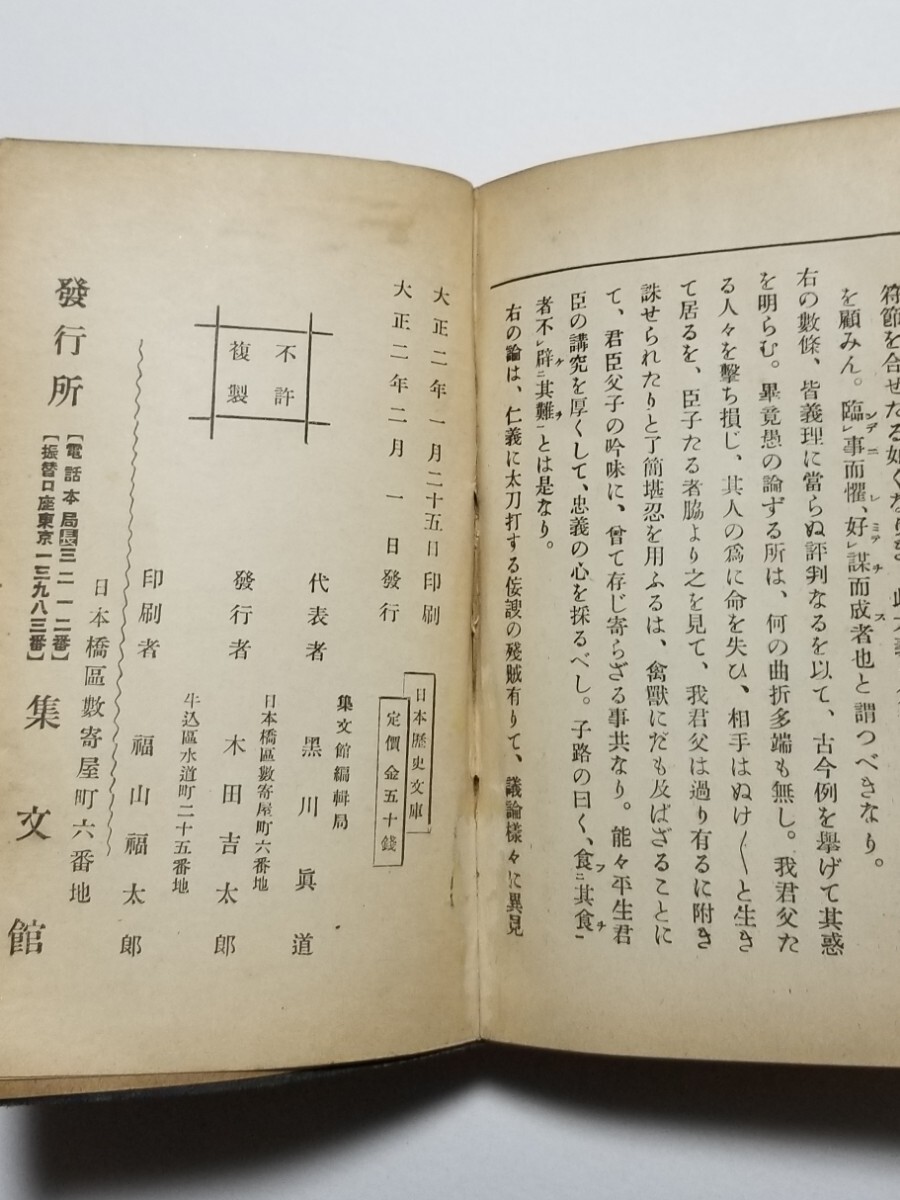 符節を合せたる如くならを
を顧みん。臨レ事而懼、好レ謀而成者也と謂つべきなり。
右の數條、皆義理に當らぬ評判なるを以て、古今例を擧げて其惑
を明らむ。畢竟愚の論ずる所は、何の曲折多端も無し。我君父た
る人々を擊ち損じ、其人の爲に命を失ひ、相手はぬけ〳〵と生き
て居るを、臣子たる者脇より之を見て、我君父は過り有るに附き
誅せられたりと了簡堪忍を用ふるは、禽獸にだも及ばざることに
て、君臣父子の吟味に、曾て存じ寄らざる事共なり。能々平生君
臣の講究を厚くして、忠義の心を採るべし。子路の曰く、食ニ其食一
者不レ辟ニ其難一とは是なり。
右の論は、仁義に太刀打する佞諛の殘賊有りて、議論樣々に異見
大正二年一月二十五日印刷
大正二年二月一日發行
日本歷史文庫
定價金五十錢
不許
複製
集文館編輯局
代表者 黑川眞道
日本橋區數寄屋町六番地
發行者 木田吉太郎
牛込區水道町二十五番地
印刷者 福山福太郎
日本橋區數寄屋町六番地
發行所 集文館
【電話本局長三二一二番】
【振替口座東京一三九八三番】